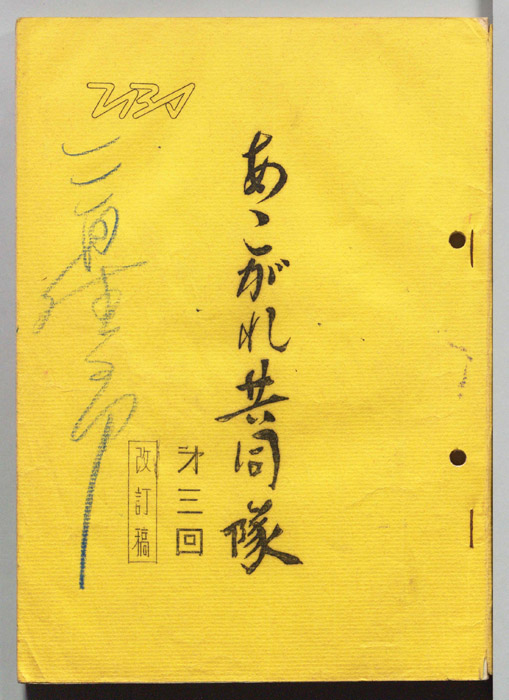 TBS
あこがれ共同隊
才三回
改訂稿